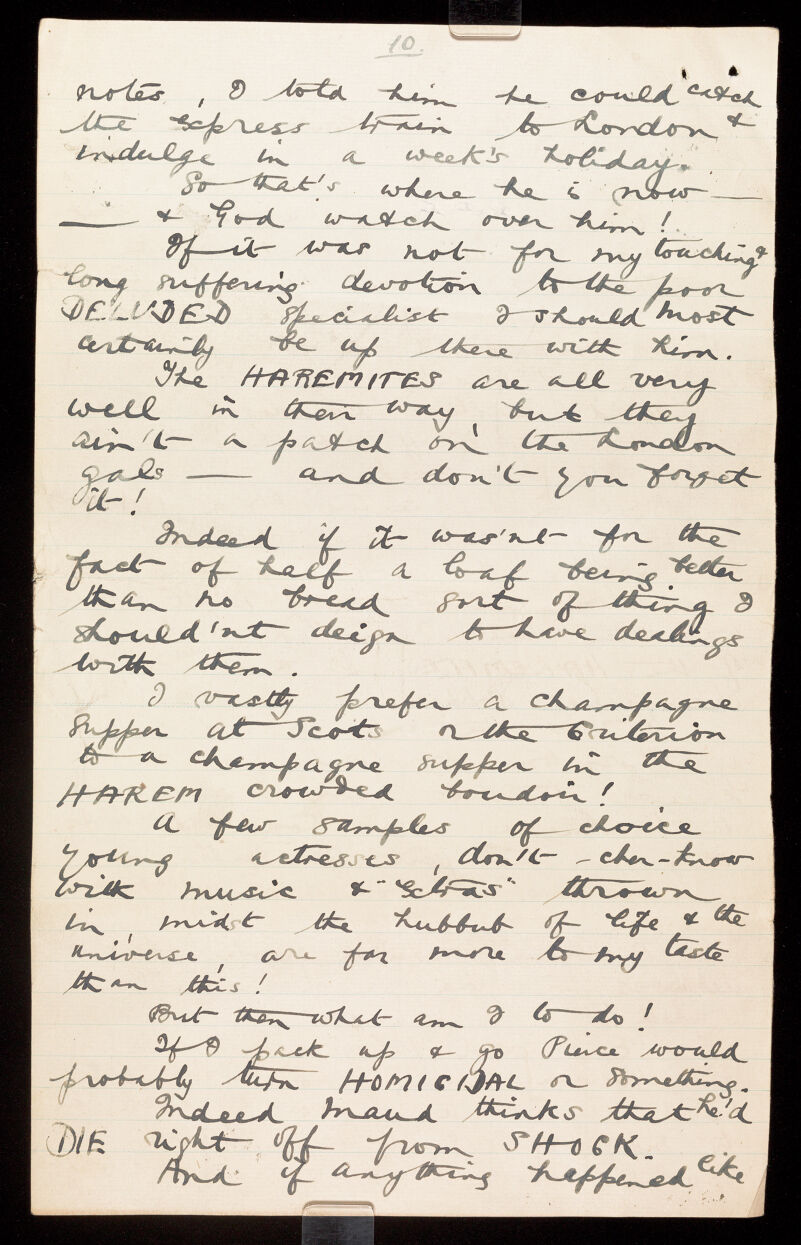 10.
notes, I told him he could catch
the express train to London &
indulge in a week's holiday.
So that's where he is now —
— & God watch over him!
If it was not for my touching &
long suffering devotion to the poor
DELUDED specialist I should most
certainly be up there with him.
The HAREMITES are all very
well in their way, but they
ain't a patch on the London
gals — and don't you forget
it!
Indeed if it was'nt for the
fact of half a loaf being better
than no bread sort of thing I
should'nt deign to have dealings
with them.
I vastly prefer a champagne
supper at Scots or the Criterion
to a champagne supper in the
HAREM crowded boudoir!
A few samples of choice
young actresses, don't-cher-know
with music & "Extras" thrown
in, midst the hubbub of life & the
universe, are far more to my taste
than this!
But then what am I to do!
If I pack up & go Pierce would
probably turn HOMICIDAL or something.
Indeed Maud thinks that he'd
DIE right off from SHOCK.
And if anything happened like